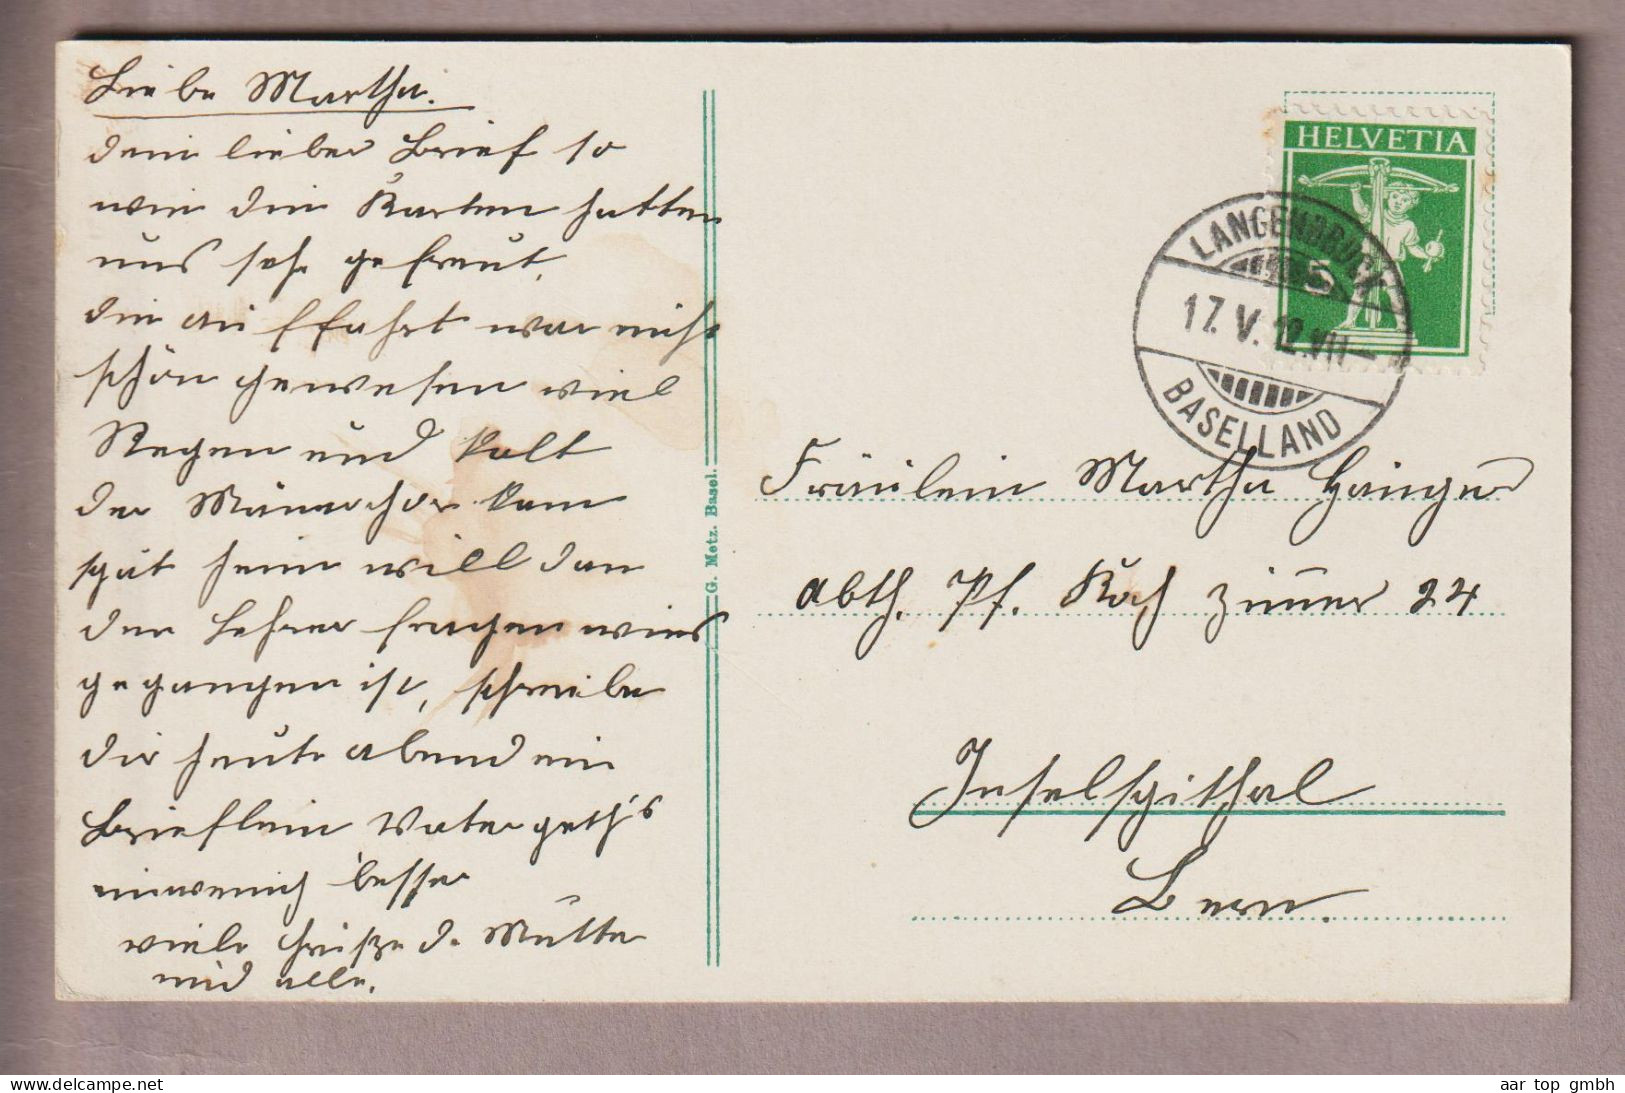 Liebe Martha.
dein lieber Brief so
wie die Karten hatten
uns sehr gefreut.
die auffahrt war nicht
schön gewesen viel
Regen und kalt
der Männerchor kam
spät heim will dan
der Lehrer fragen wies
gegangen ist, schreibe
dir heute abend ein
Brieflein Vater geth's
einwenig besser
viele Grüße d. Mutter
und alle.
G. Metz. Basel.
HELVETIA
5
LANGENBRUCK
17. V. 12. VII–
BASELLAND
Fräulein Martha
abth. Pf. Koch Zimmer 24
Inselspithal
Bern.
aar top gmbh